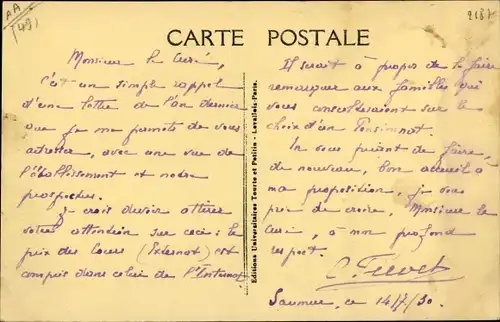 AA
(49)
2187
CARTE POSTALE
Monsieur le Curé,
C'est un simple rappel
d'une lettre de l'an dernier
que je me permets de vous
adresser, avec une vue de
l'établissement et notre
prospectus.
Je crois devoir attirer
votre attention sur ceci : le
prix des Cours (Externat) est
compris dans celui de l'Internat.
Editions Universitaires Tourte et Petitin - Levallois-Paris.
Il serait à propos de le faire
remarquer aux familles qui
vous consulteraient sur le
choix d'un Pensionnat.
En vous priant de faire,
de nouveau, bon accueil à
ma proposition, je vous
prie de croire, Monsieur le
Curé, à mon profond
respect.
Saumur, ce 14/7/30.